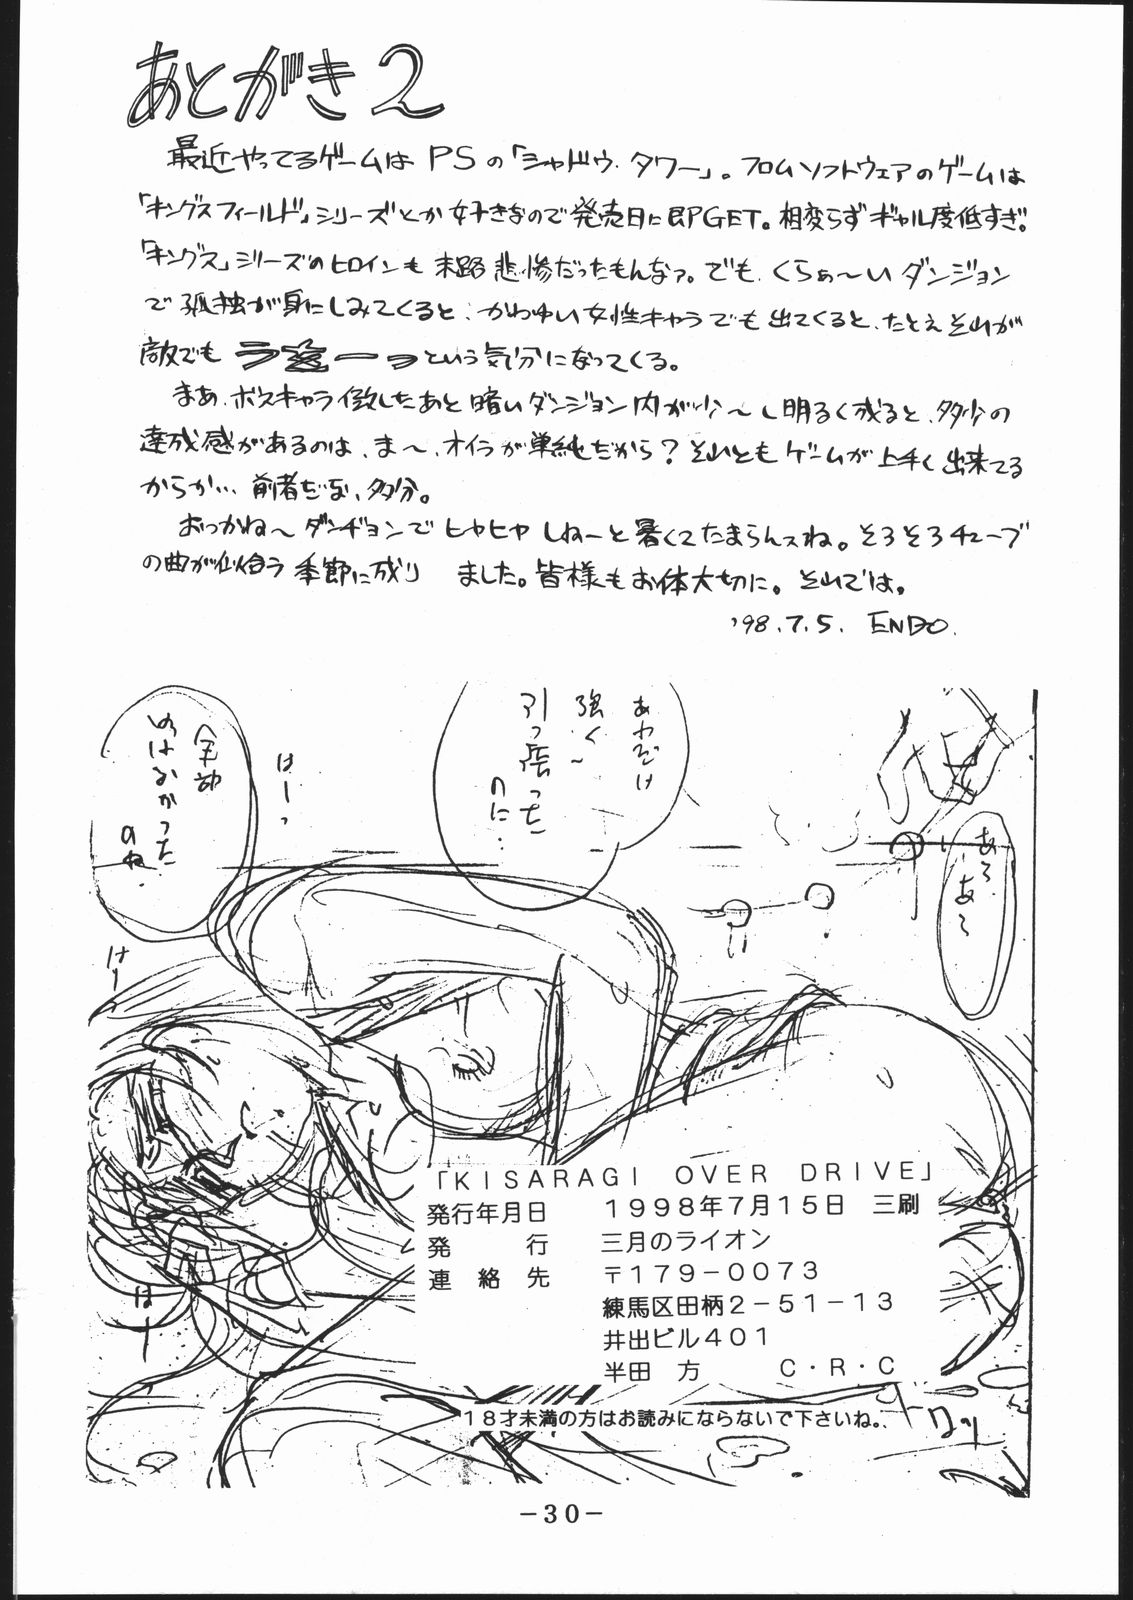 あとがき2
最近やってるゲームはPSの「シャドウ・タワー」。フロムソフトウェアのゲームは
「キングスフィールド」シリーズとか好きなので発売日に即GET。相変らずギャル度低すぎ。
「キングス」シリーズのヒロインも末路悲惨だったもんなァ。でも、くらぁ〜いダンジョン
で孤独が身にしみてくると、かわゆい女性キャラでも出てくると、たとえそれが
敵でも という気分になってくる。
まあ、ボスキャラ倒したあと暗いダンジョン内が少〜し明るく成ると、多少の
達成感があるのは、ま〜、オイラが単純だから?それともゲームが上手く出来てる
からか… 前者だな、多分。
おっかね〜ダンヂョンでヒヤヒヤしねーと暑くてたまらんスね。そろそろチューブ
の曲が似合う季節に成り ました。皆様もお体大切に。それでは。
'98.7.5. ENDO.
あれだけ
強く〜
引っ張った
のに・
はーっ
全部
のね・
はーっ
はー
「KISARAGI OVER DRIVE」
発行年月日 1998年7月15日 三刷
発行 三月のライオン
連絡先 〒179-0073
練馬区田柄2-51-13
井出ビル401
半田 方 C・R・C
18才未満の方はお読みにならないで下さいね。
-30-